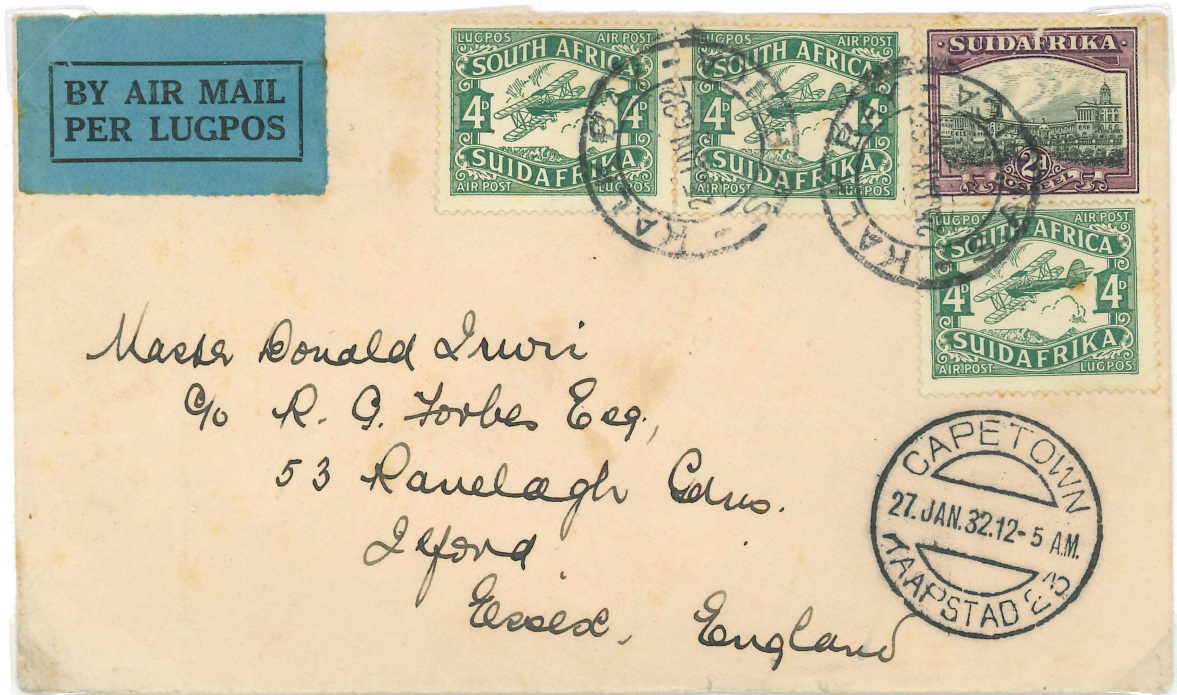 BY AIR MAIL
PER LUGPOS
LUGPOS AIR POST
SOUTH AFRICA
4D 4D
SUIDAFRIKA
AIR POST LUGPOS
LUGPOS AIR POST
SOUTH AFRICA
4D 4D
SUIDAFRIKA
AIR POST LUGPOS
SUIDAFRIKA
2d
POSSEEL
LUGPOS AIR POST
SOUTH AFRICA
4D 4D
SUIDAFRIKA
AIR POST LUGPOS
KALK BAY
KALK BAY
Master Donald Irwin
c/o R. G. Forbes Esq.,
53 Ranelagh Gdns.
Ilford
Essex, England
CAPETOWN
27.JAN.32.12-5 A.M.
KAAPSTAD